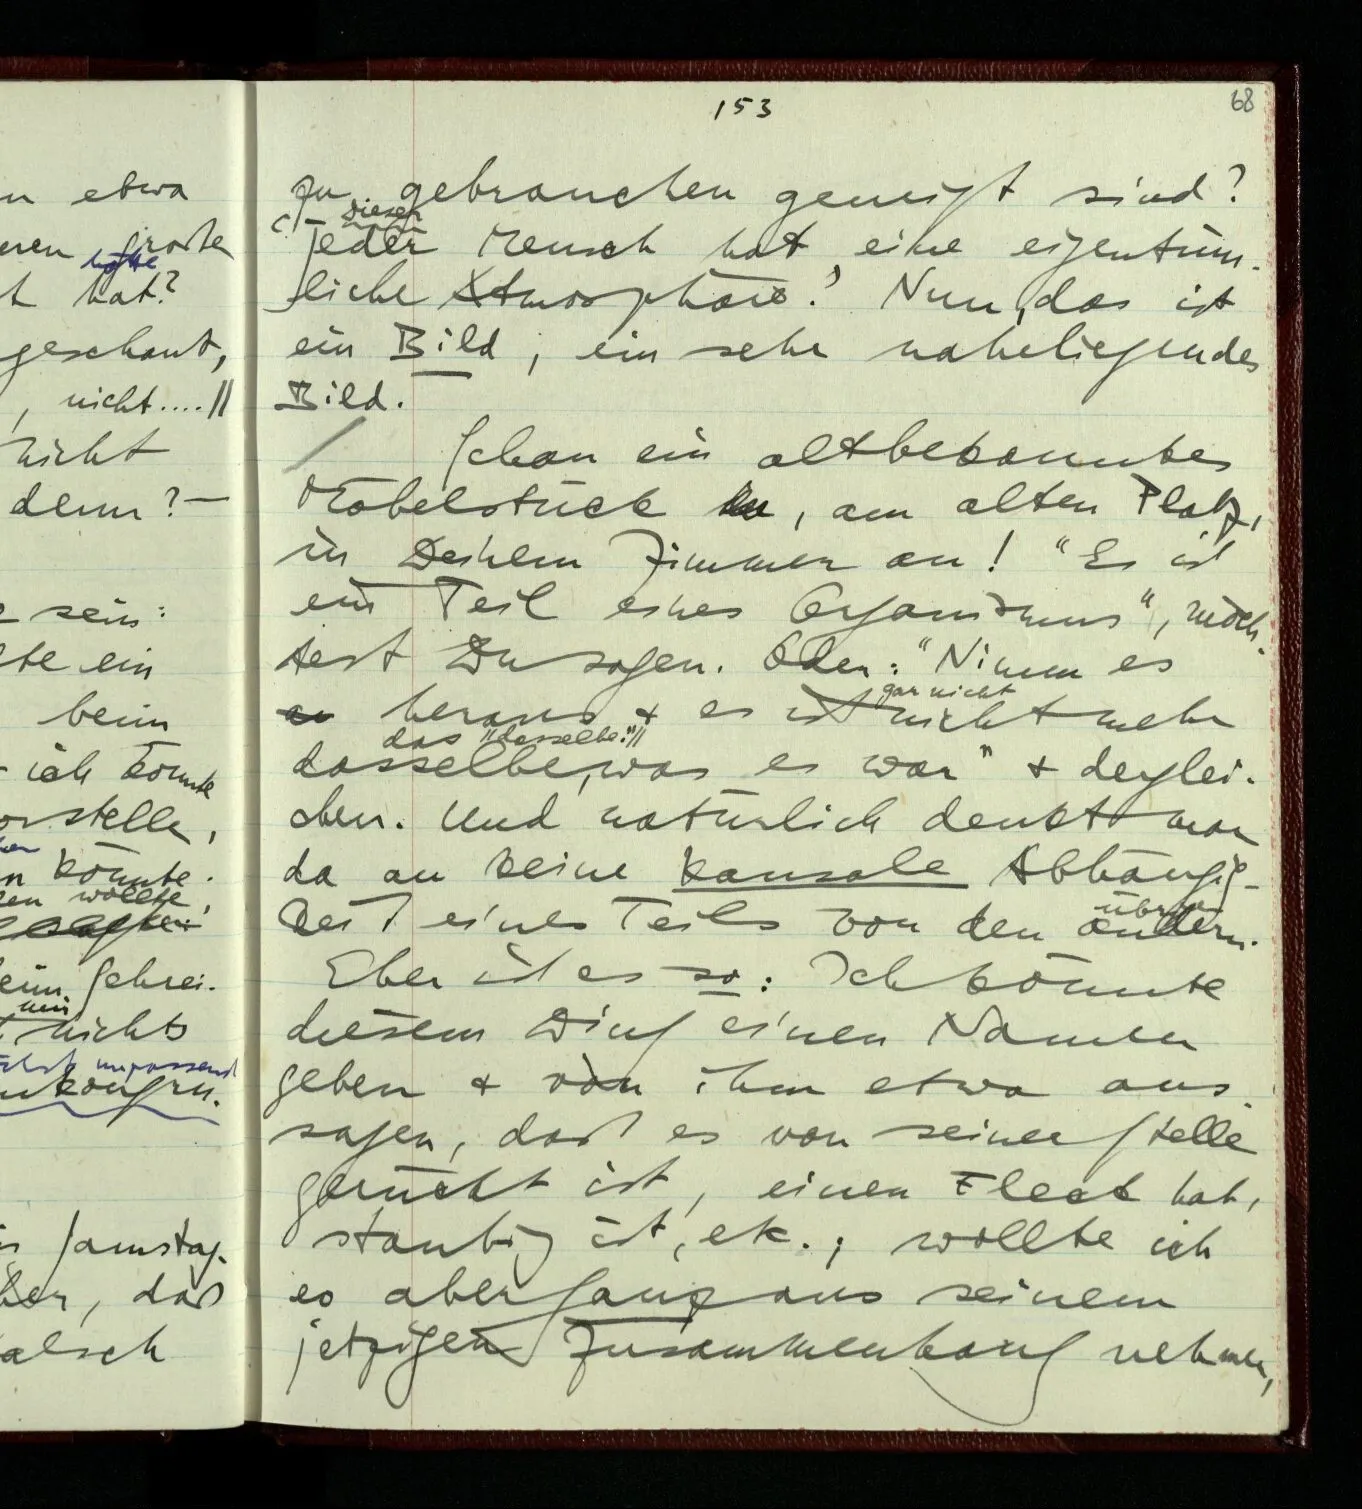 153
68
n etwa
hätte
t hat?
geschaut,
, nicht....//
nicht
denn? —
sein:
te ein
beim
ich könnte
orstelle,
könnte.
en wollte,
nichts
unpassend
Samstag.
, daß
alsch
zu gebrauchen geneigt sind?
dieser
Jeder Mensch hat eine eigentüm-
liche Atmosphäre? Nun, das ist
ein Bild, ein sehr naheliegendes
Bild.
Schau ein altbekanntes
Möbelstück, am alten Platz,
in Deinem Zimmer an! "Es ist
ein Teil eines Organismus", möch-
test Du sagen. Oder: "Nimm es
gar nicht
heraus & es ist nicht mehr
das "dasselbe."//
dasselbe, was es war" & derglei-
chen. Und natürlich denkt man
da an keine kausale Abhängig-
keit eines Teils von den andern.
Eher ist es so: Ich könnte
diesem Ding einen Namen
geben & von ihm etwa aus-
sagen, daß es von seiner Stelle
gerückt ist, einen Fleck hat,
staubig ist, etc.; wollte ich
es aber ganz aus seinem
jetzigen Zusammenhang nehmen,